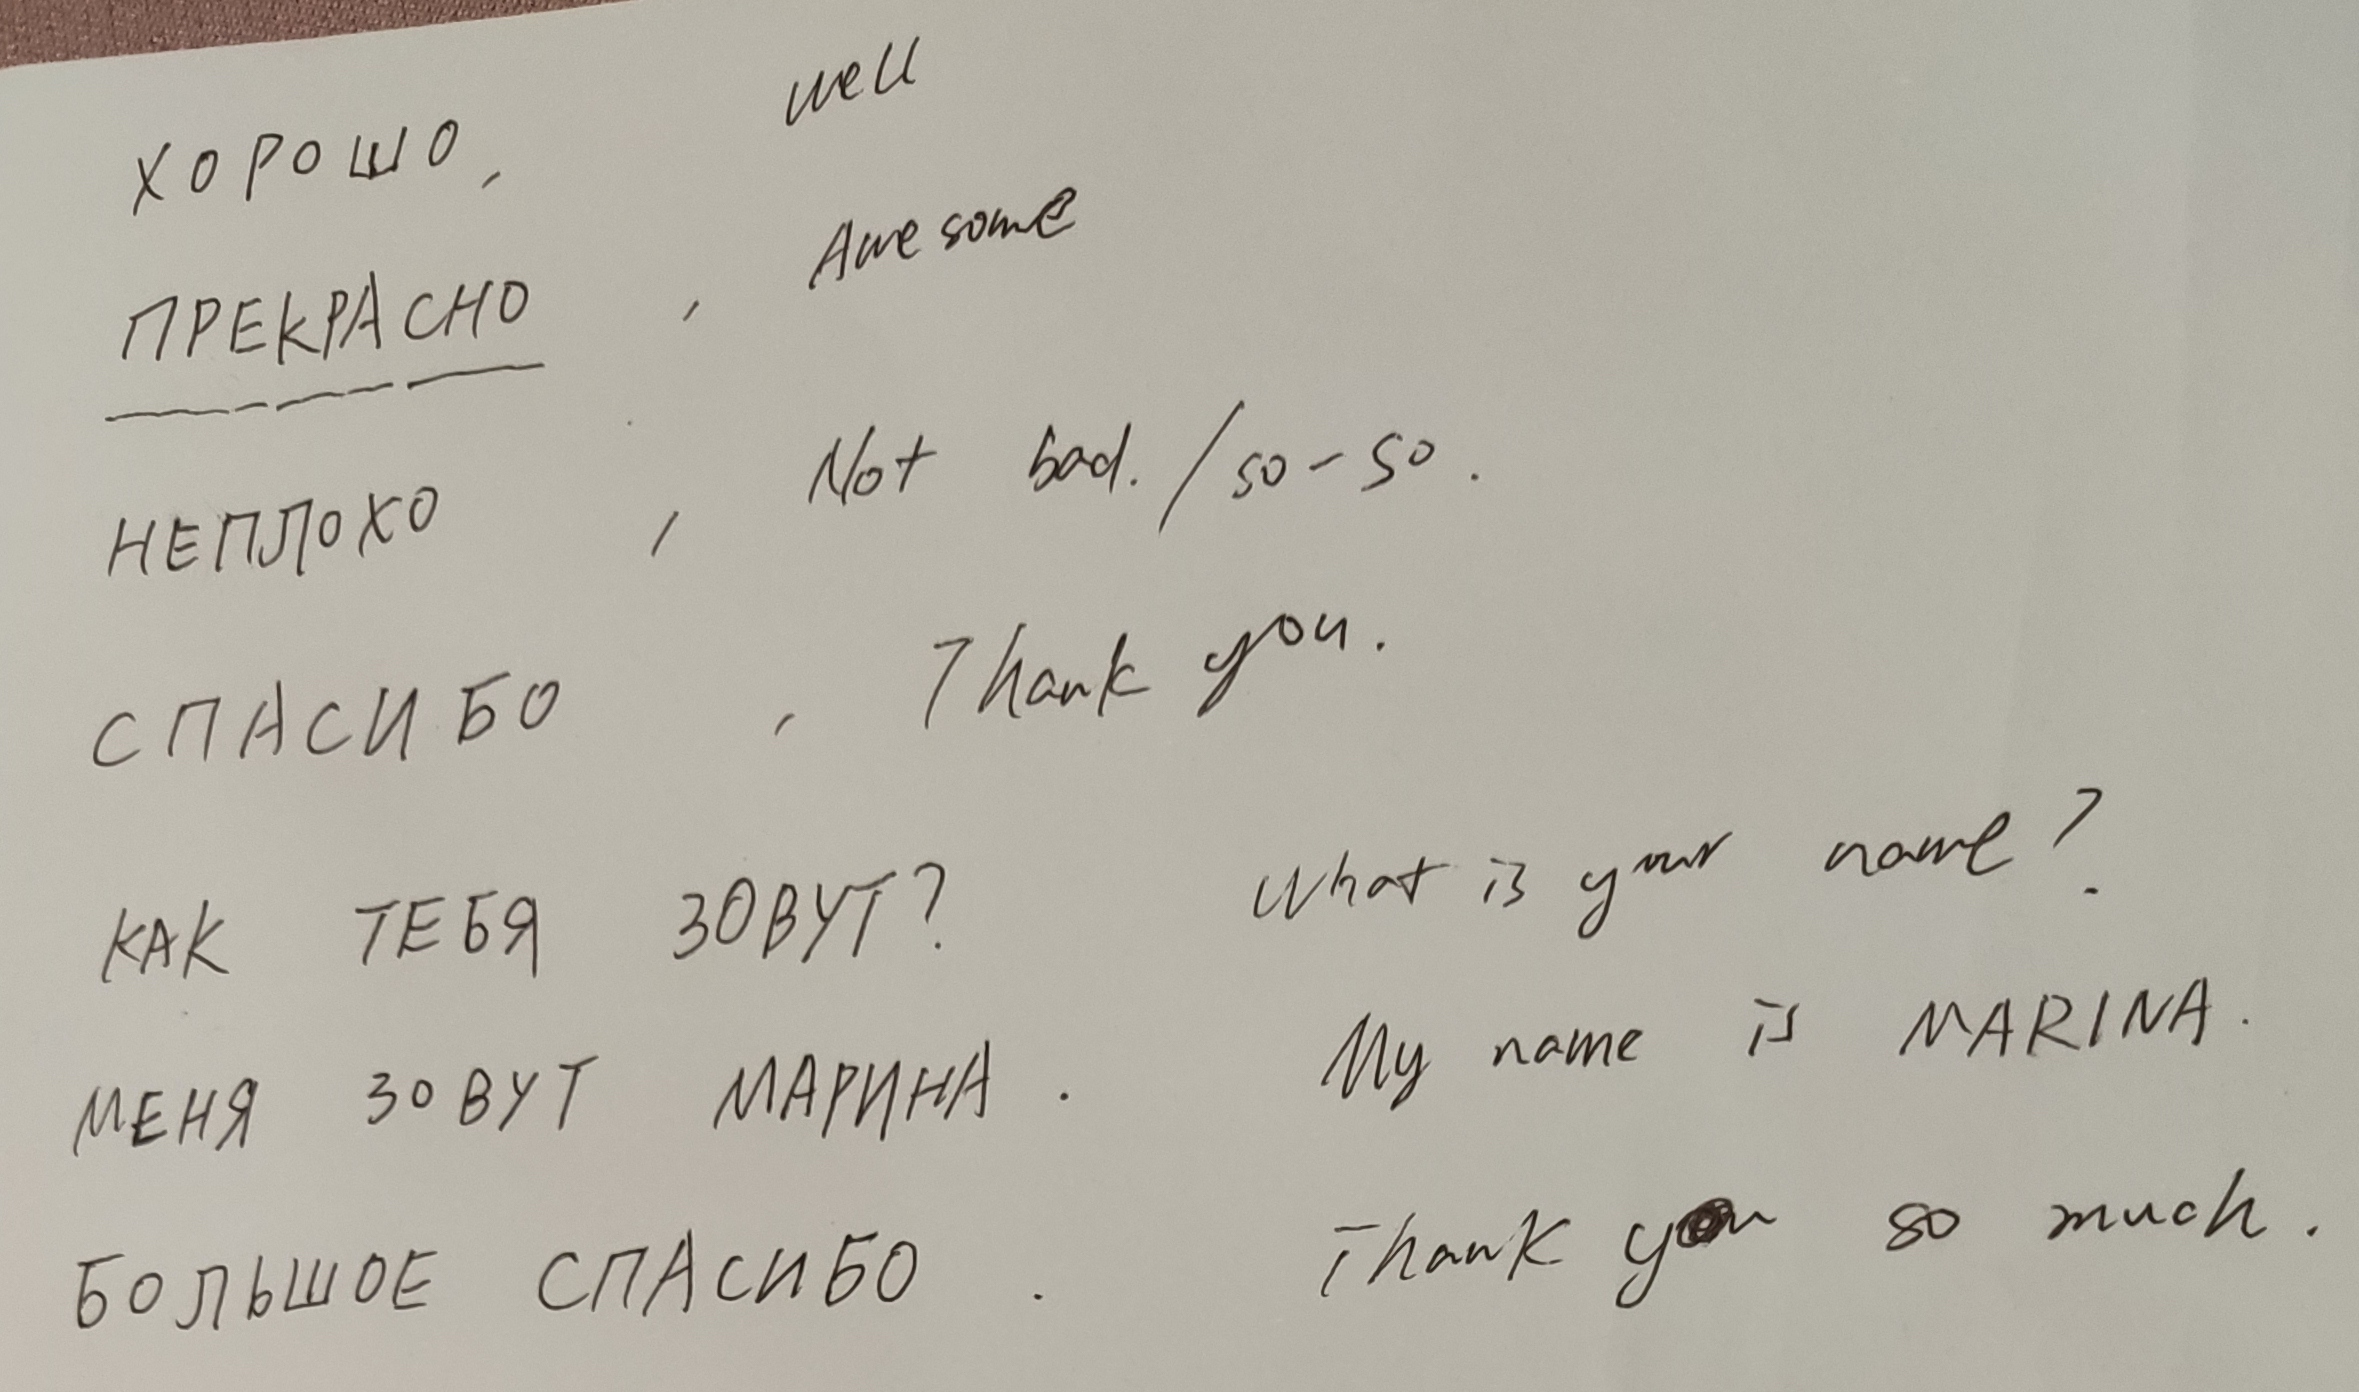 ХОРОШО, well
ПРЕКРАСНО, Awesome
НЕПЛОХО, Not bad. / so-so.
СПАСИБО, Thank you.
КАК ТЕБЯ ЗОВУТ? What is your name?
МЕНЯ ЗОВУТ МАРИНА. My name is MARINA.
БОЛЬШОЕ СПАСИБО. Thank you so much.